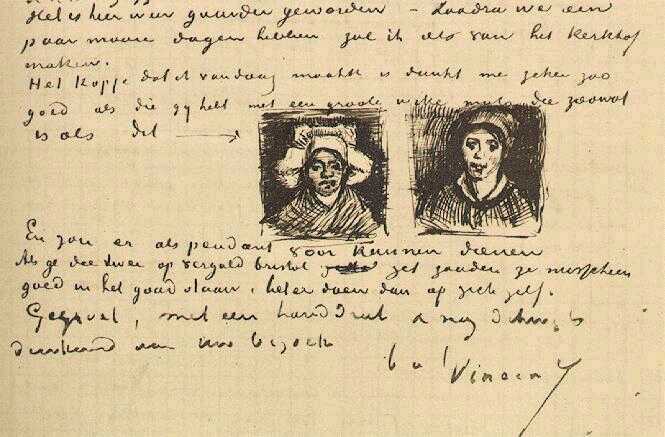 Het is hier weer guurder geworden – Zoodra we een
paar mooie dagen hebben zal ik iets van het kerkhof
maken.
Het kopje dat ik vandaag maakte is dunkt me geheel zoo
goed als die gy hebt met een groote witte muts die zoowat
is als dit
En zou er als pendant voor kunnen dienen
Als ge die twee op verguld bristol zet zouden ze misschien
goed in het goud staan, beter doen dan op zich zelf.
Gegroet, met een handdruk & nog
dankend voor uw bezoek
b. à t.
Vincent